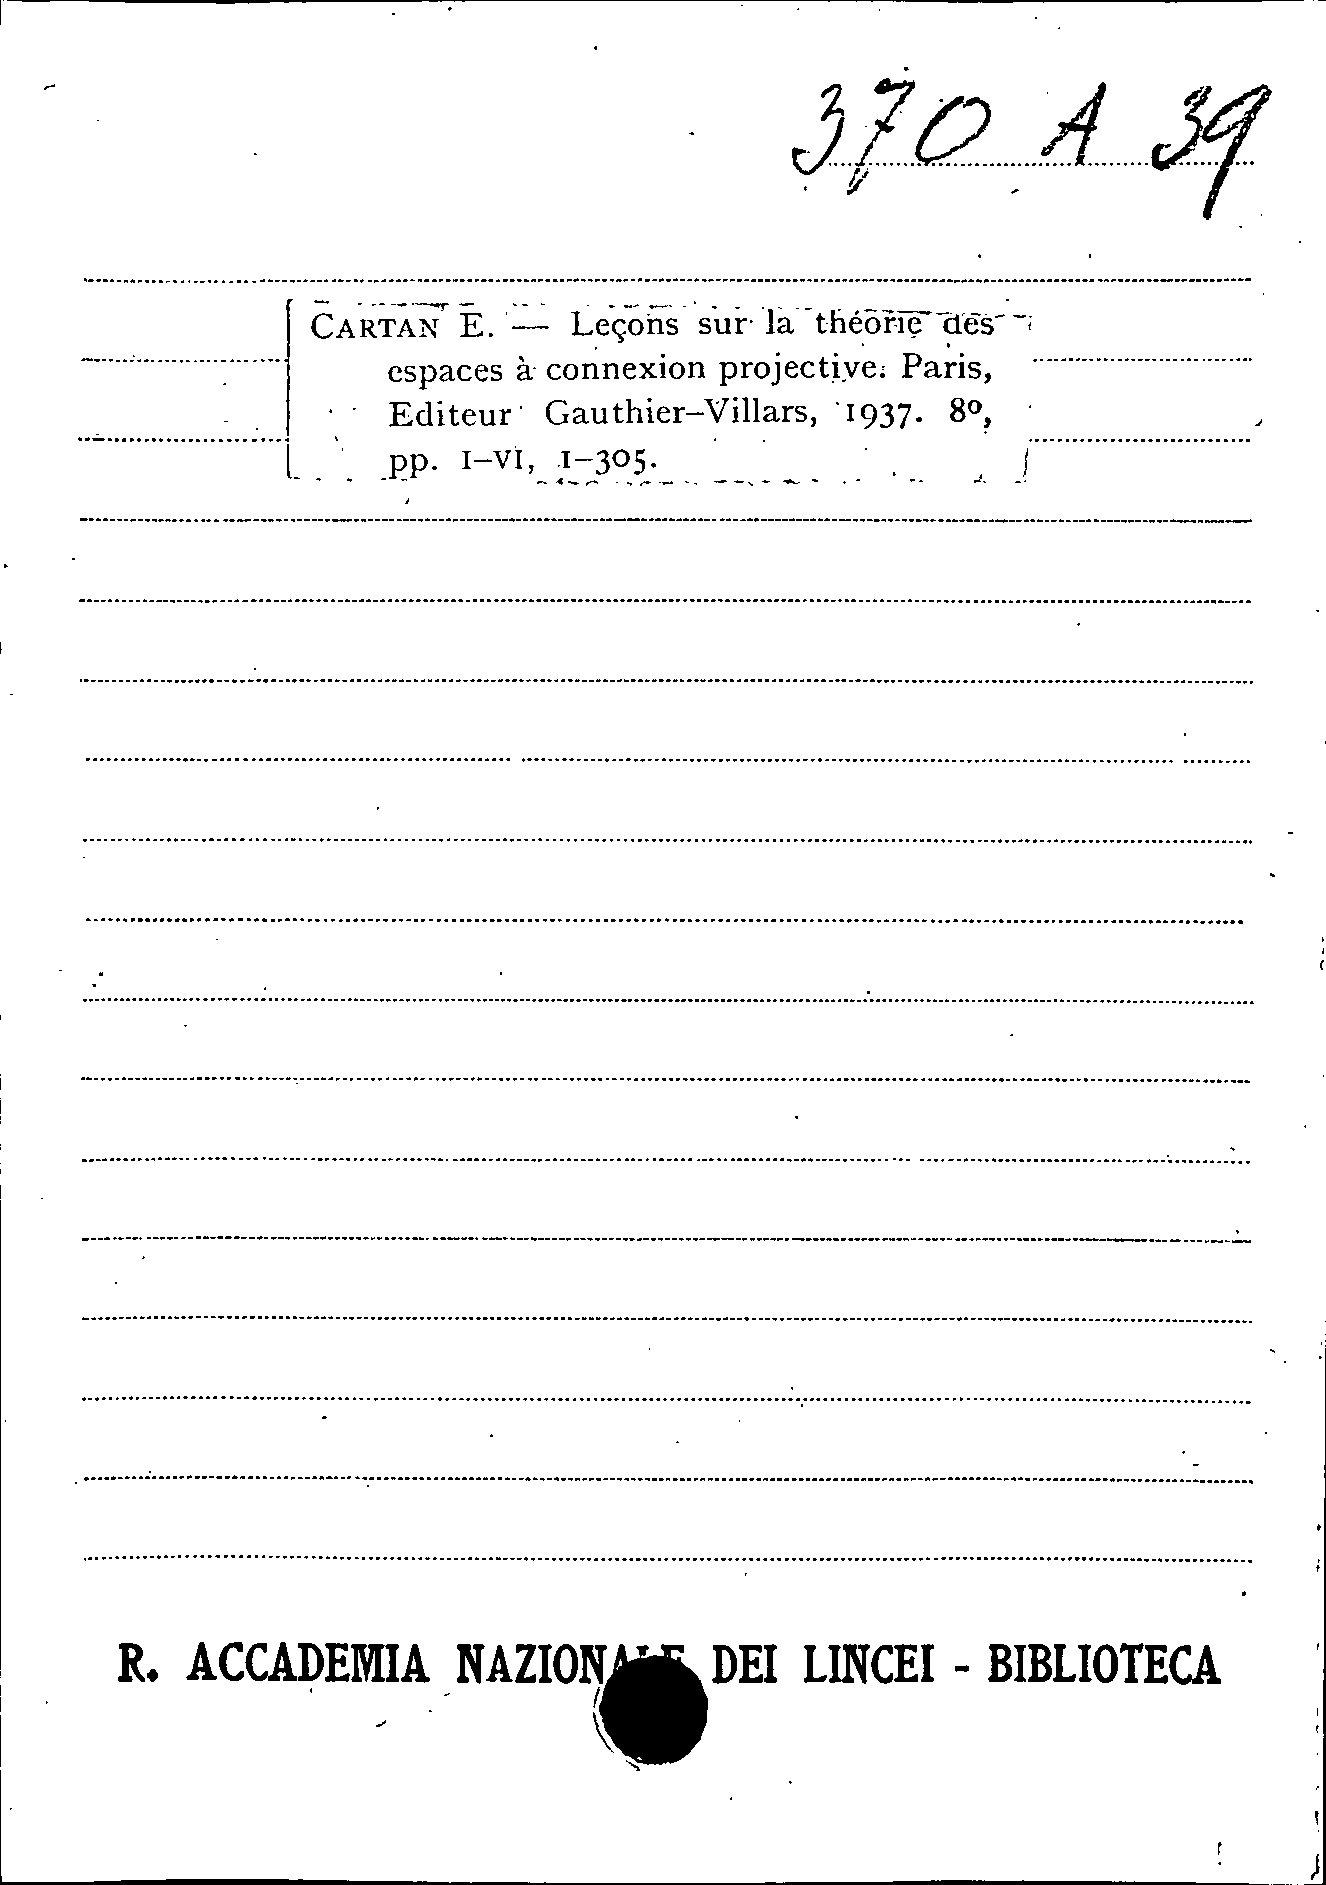 370 A 39
CARTAN E. — Leçons sur la théorie des
espaces à connexion projective. Paris,
Editeur Gauthier–Villars, 1937. 8º,
pp. I–VI, I–305.
R. ACCADEMIA NAZIONALE DEI LINCEI - BIBLIOTECA